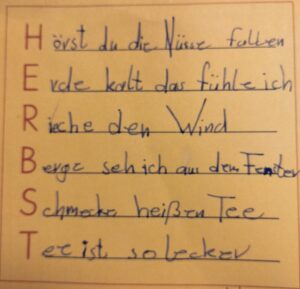 Hörst du die Nüsse fallen
Erde kalt das fühle ich
Rieche den Wind
Berge seh ich aus dem Fenster
Schmecke heißen Tee
Tee ist so lecker